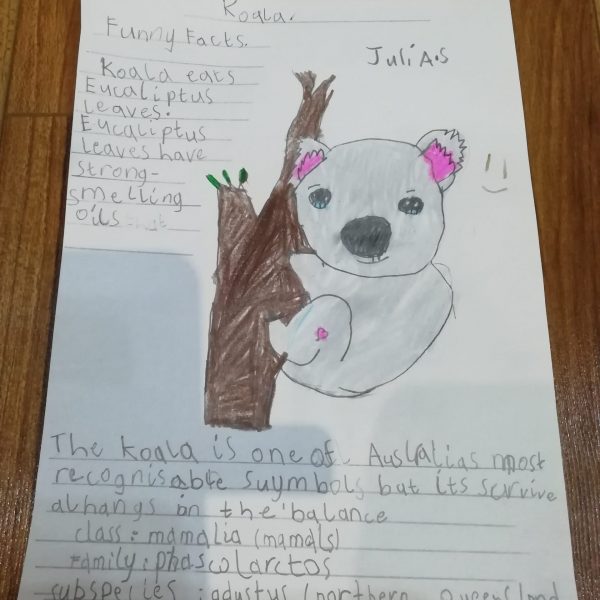 Koala.
Funny Facts.
JuliA.S
Koala eats
Eucaliptus
leaves.
Eucaliptus
leaves have
strong-
smelling
oils
The koala is one of Australias most
recognisable suymbols but its survive
alhangs in the balance
class: mamalia (mamals)
Family: phascolarctos
subspecies: adustus (northern Queensland